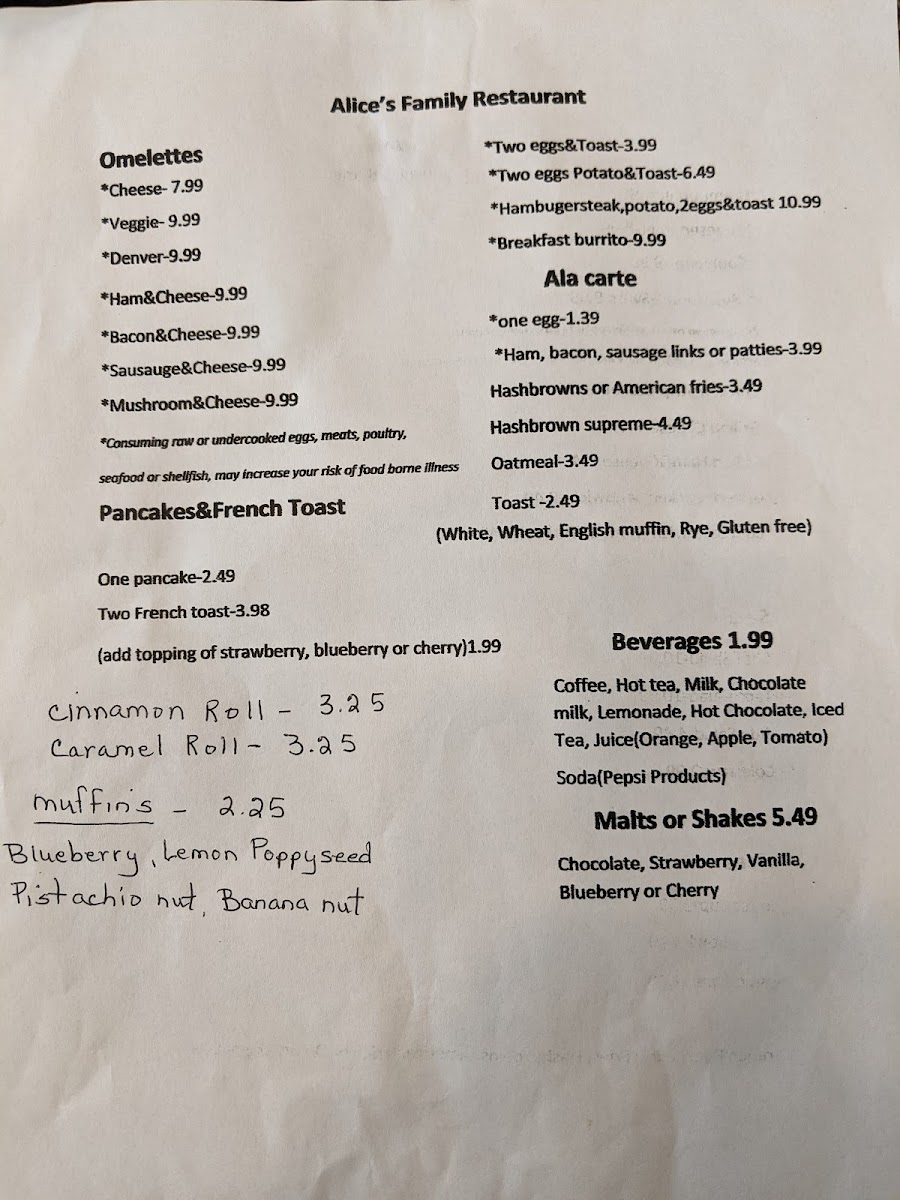 Alice's Family Restaurant
Omelettes
*Cheese- 7.99
*Veggie- 9.99
*Denver-9.99
*Ham&Cheese-9.99
*Bacon&Cheese-9.99
*Sausauge&Cheese-9.99
*Mushroom&Cheese-9.99
*Consuming raw or undercooked eggs, meats, poultry,
seafood or shellfish, may increase your risk of food borne illness
Pancakes&French Toast
One pancake-2.49
Two French toast-3.98
(add topping of strawberry, blueberry or cherry)1.99
Cinnamon Roll - 3.25
Caramel Roll - 3.25
muffin's - 2.25
Blueberry, Lemon Poppyseed
Pistachio nut, Banana nut
*Two eggs&Toast-3.99
*Two eggs Potato&Toast-6.49
*Hambugersteak,potato,2eggs&toast 10.99
*Breakfast burrito-9.99
Ala carte
*one egg-1.39
*Ham, bacon, sausage links or patties-3.99
Hashbrowns or American fries-3.49
Hashbrown supreme-4.49
Oatmeal-3.49
Toast -2.49
(White, Wheat, English muffin, Rye, Gluten free)
Beverages 1.99
Coffee, Hot tea, Milk, Chocolate
milk, Lemonade, Hot Chocolate, Iced
Tea, Juice(Orange, Apple, Tomato)
Soda(Pepsi Products)
Malts or Shakes 5.49
Chocolate, Strawberry, Vanilla,
Blueberry or Cherry